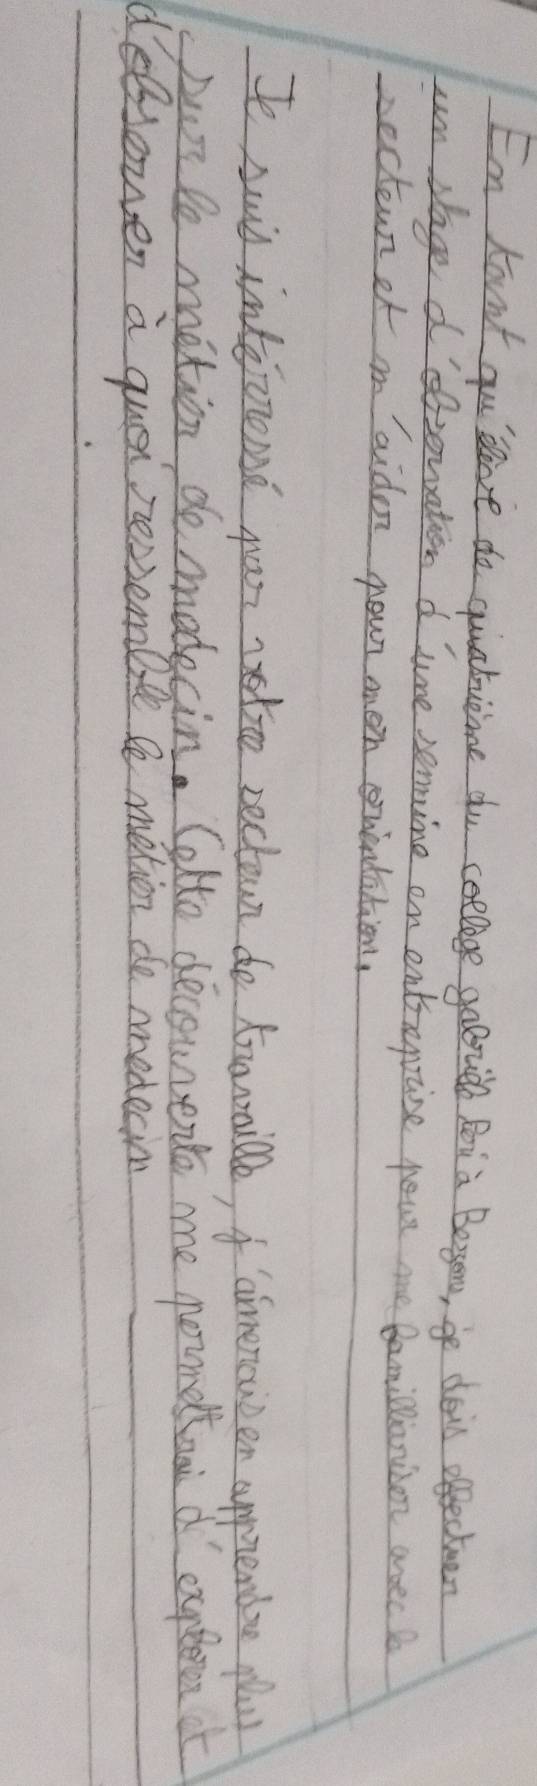 En tant qu'élève de quatrième du collège gabrièle Peri à Bezons, je dois effectuer
un stage d'observation d'une semmine en entreprise pour me familliariser avec le
secteur et m'aider pour mon orientation.
Je suis intérressé par votre secteur de travaille, j'aimerais en apprendre plus
sur le métier de medecin. Cette découverte me permettrai d'explorer et
d'observer à quoi ressemble le métier de medecin